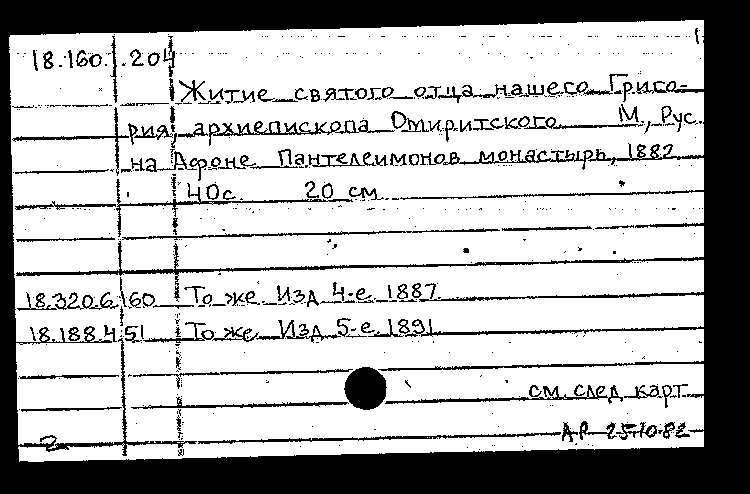 18.160.1.204
Житие святого отца нашего Григо-
рия, архиепископа Омиритского. М., Рус.
на Афоне Пантелеимонов монастырь, 1882.
40с. 20 см.
18.320.6.160 То же. Изд. 4-е. 1887.
18.188.4.51 То же. Изд. 5-е. 1891.
см. след. карт.
2 АР 25.10.82